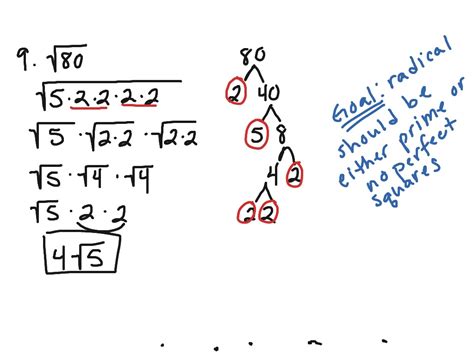 9. √80
√5·2·2·2·2
√5 · √2·2 · √2·2
√5 · √4 · √4
√5 · 2 · 2
4√5
80
2 40
5 8
4 2
2 2
Goal: radical
should be
either prime or
no perfect
squares